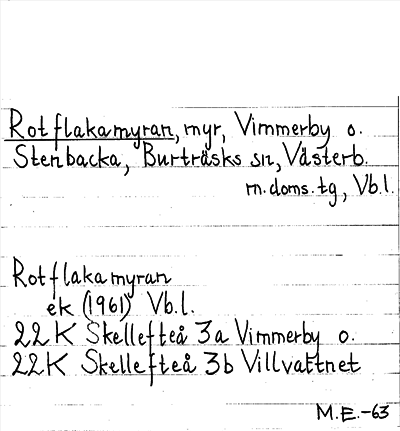 Rotflakamyran, myr, Vimmerby o.
Stenbacka, Burträsks sn, Västerb.
n. doms. tg, Vb.l.
Rotflakamyran
ek (1961) Vb.l.
22K Skellefteå 3a Vimmerby o.
22K Skellefteå 3b Villvattnet
M.E.-63